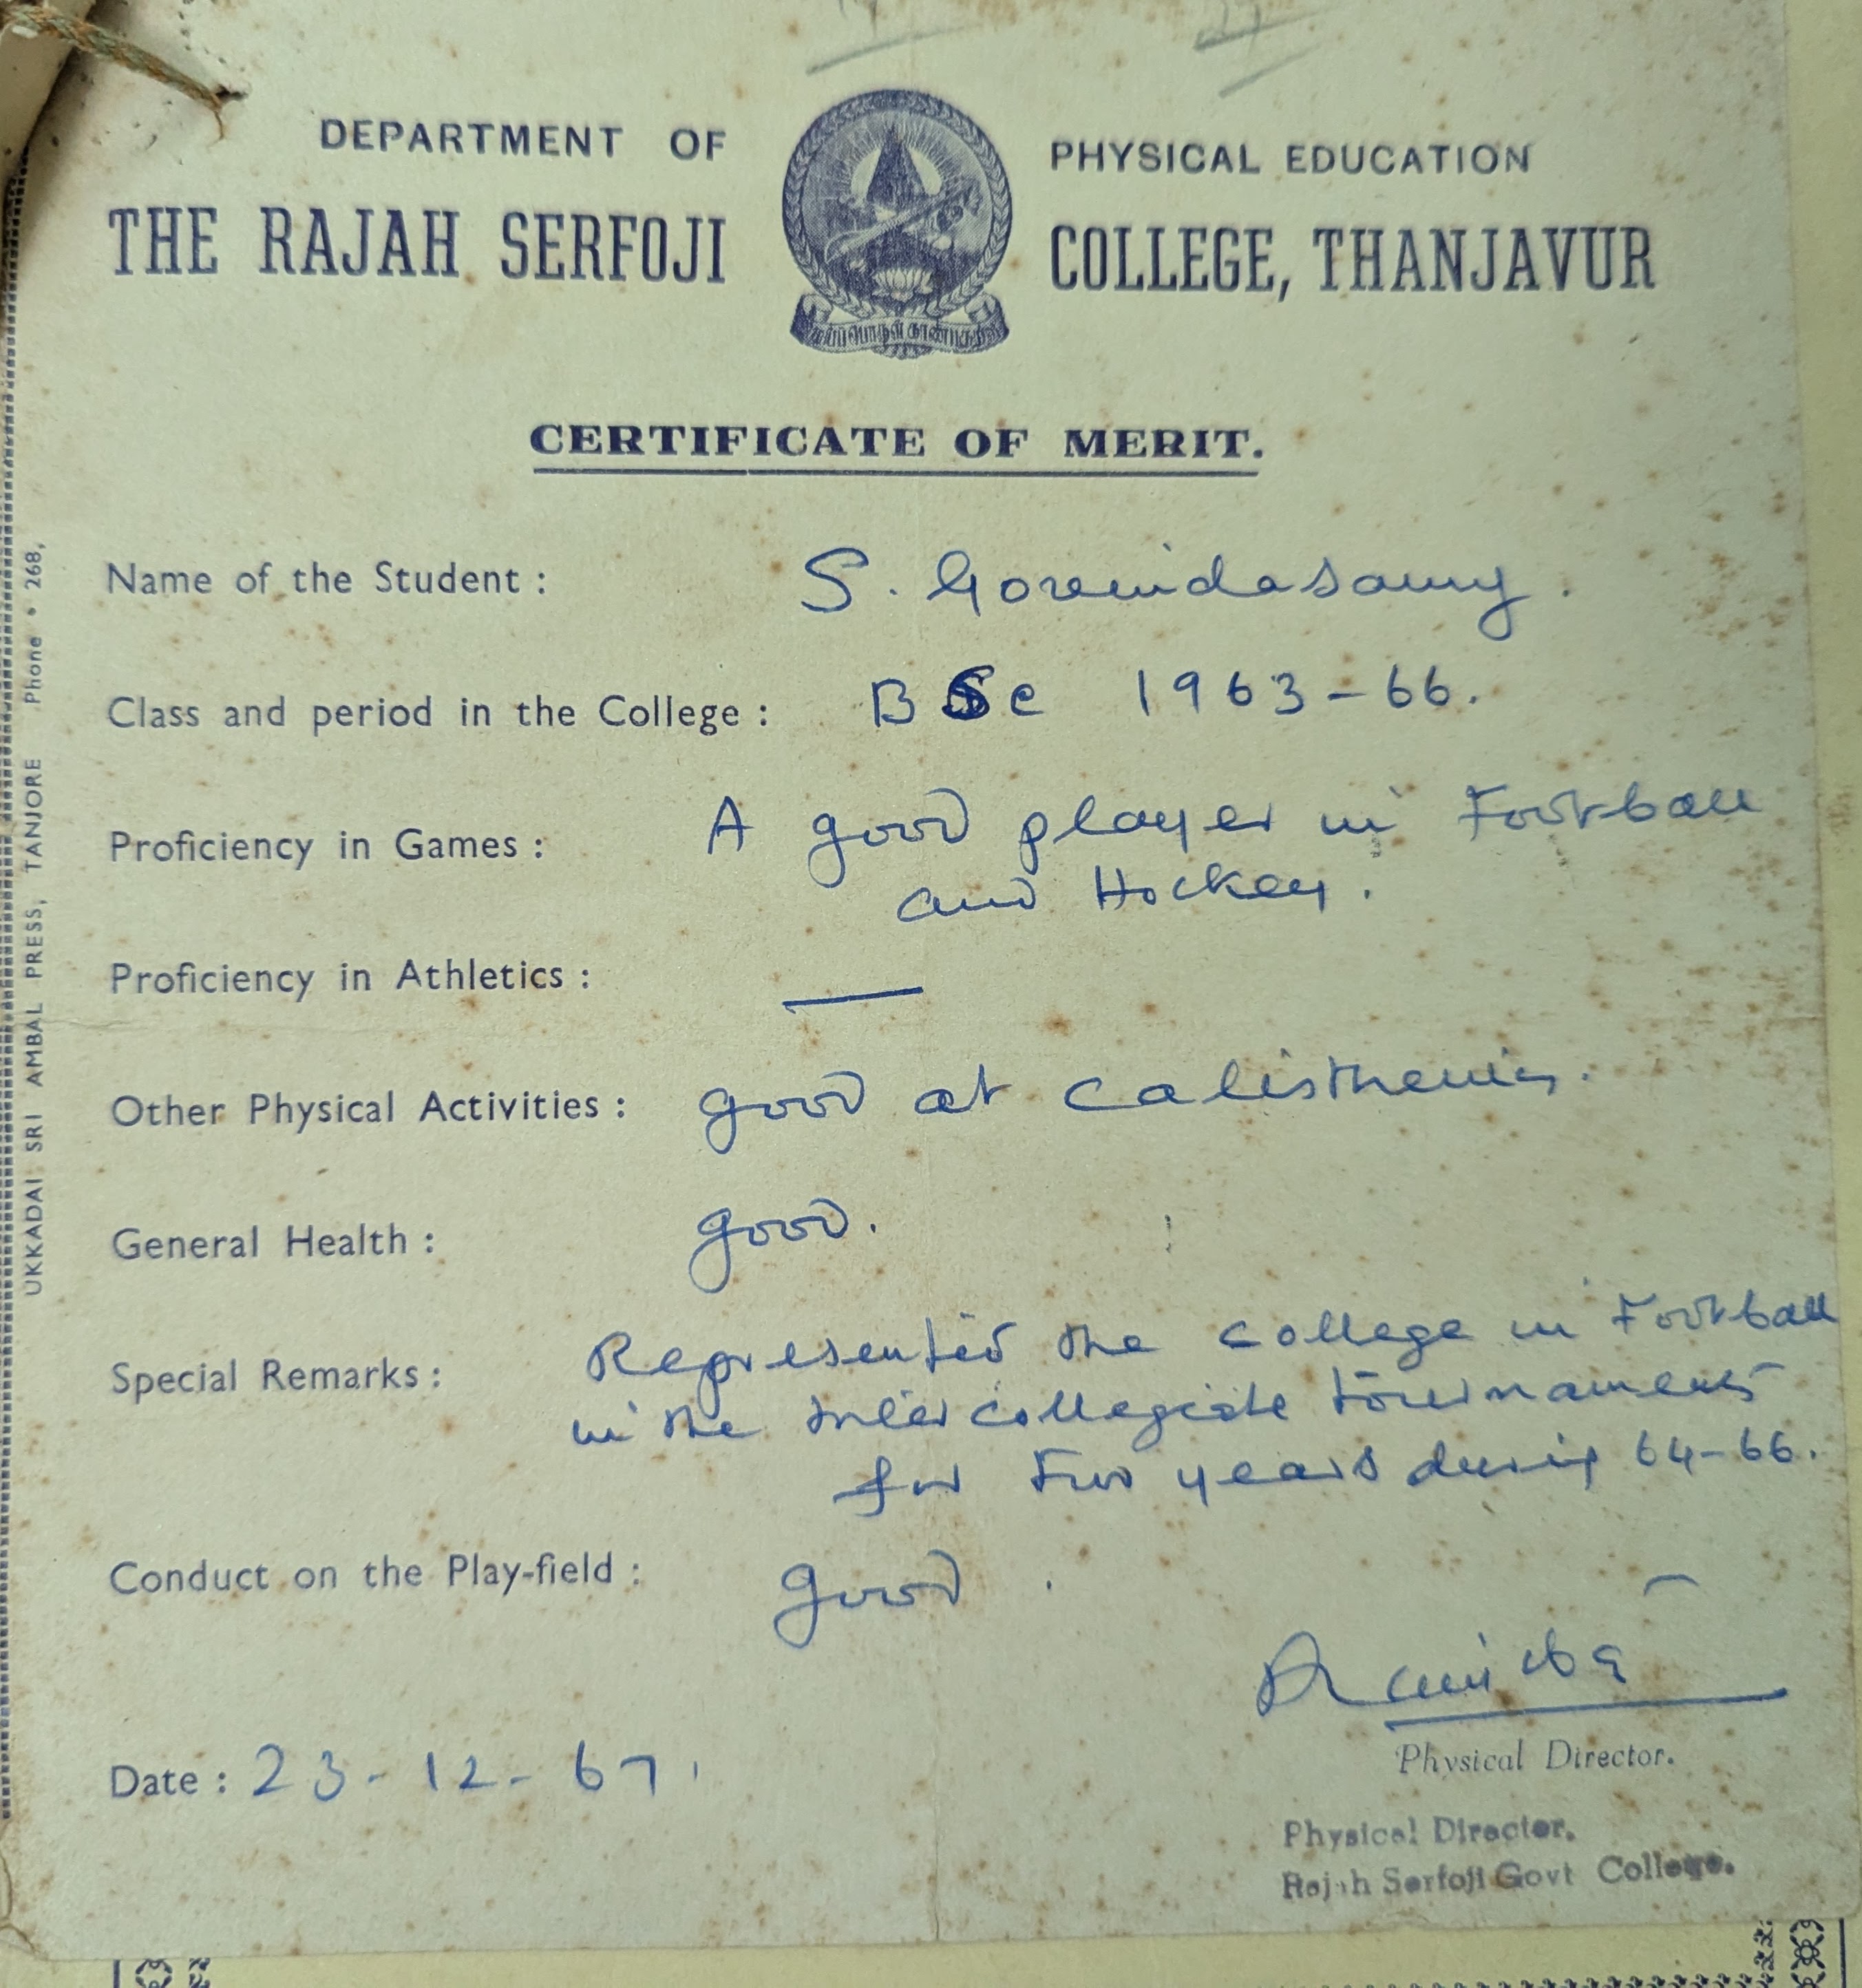 DEPARTMENT OF PHYSICAL EDUCATION
THE RAJAH SERFOJI COLLEGE, THANJAVUR
CERTIFICATE OF MERIT.
Name of the Student : S. Govindasamy.
Class and period in the College : BSc 1963-66.
Proficiency in Games : A good player in Football
and Hockey.
Proficiency in Athletics : —
Other Physical Activities : good at calisthenics.
General Health : good.
Special Remarks : Represented the college in Football
in the Inter collegiate tournaments
for two years during 64-66.
Conduct on the Play-field : good.
Date : 23-12-67.
Physical Director.
Physical Director.
Rajah Serfoji Govt College.
UKKADAI SRI AMBAL PRESS, TANJORE Phone • 268,